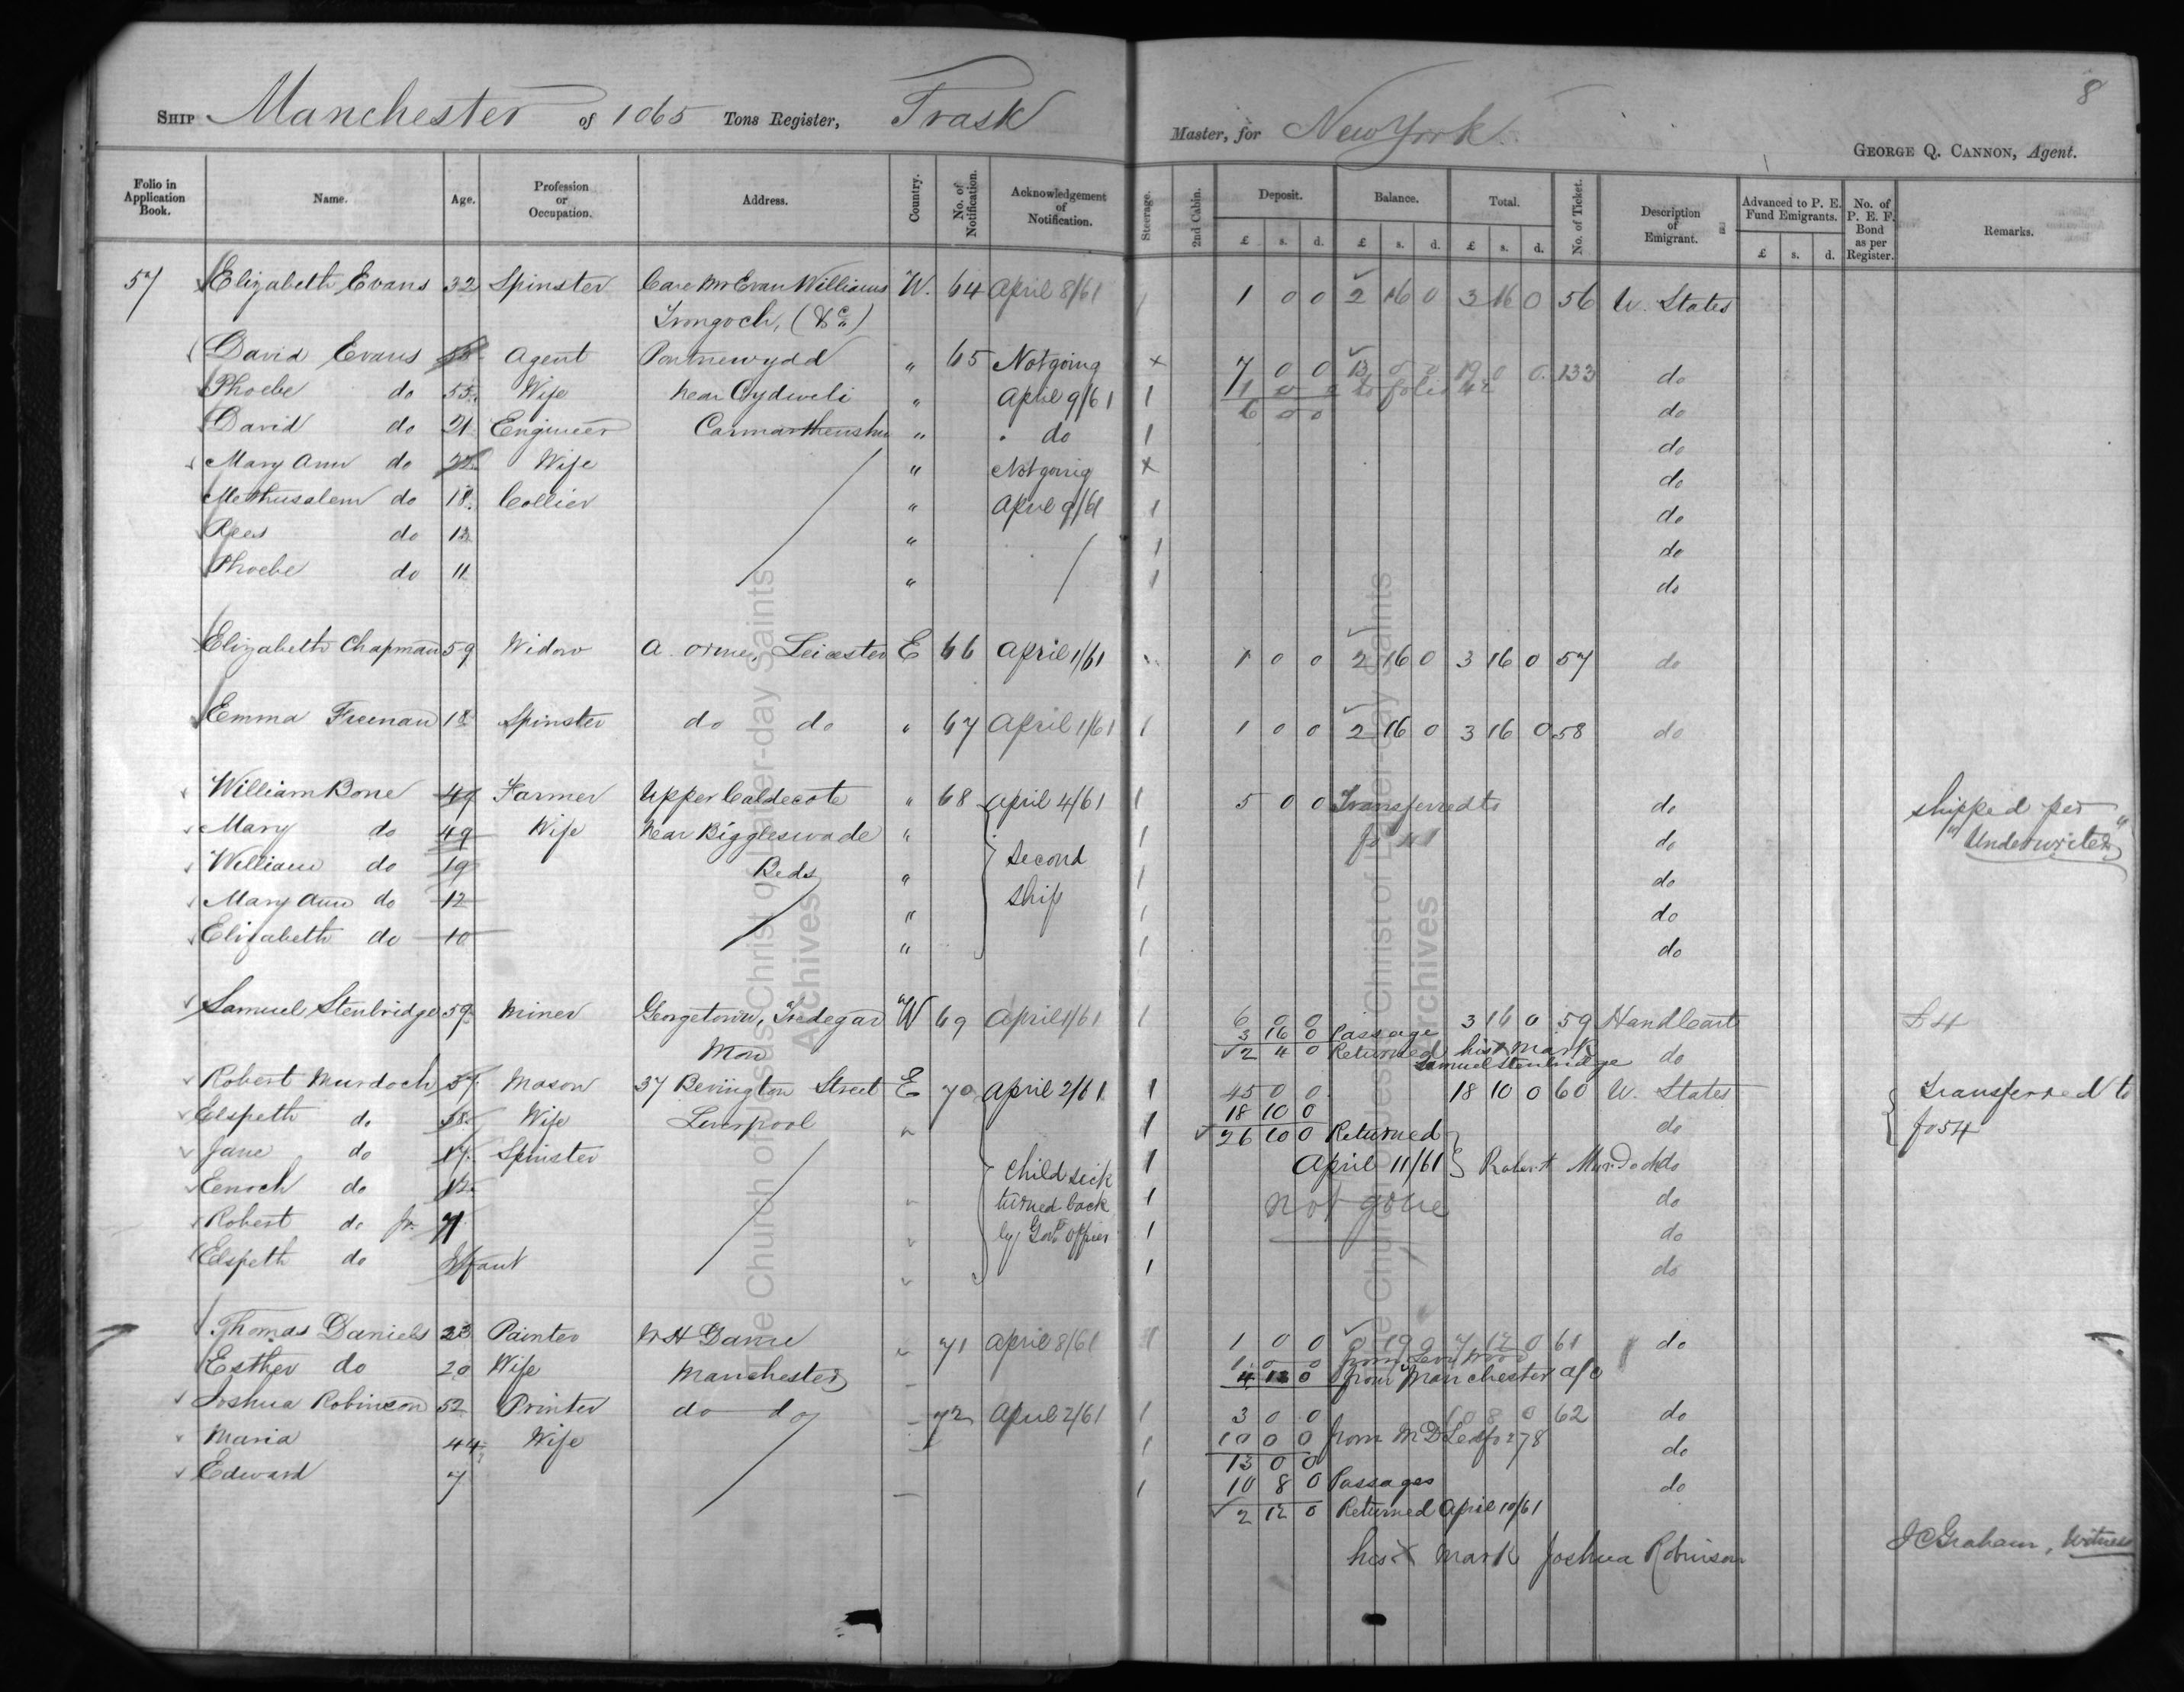 8
SHIP Manchester of 1065 Tons Register, Trask Master, for New York
GEORGE Q. CANNON, Agent.
Folio in Application Book. Name. Age. Profession or Occupation. Address. Country. No. of Notification. Acknowledgement of Notification. Steerage. 2nd Cabin. Deposit. Balance. Total. No. of Ticket. Description of Emigrant. Advanced to P. E. Fund Emigrants. No. of P. E. F. Bond as per Register. Remarks.
£ s. d. £ s. d. £ s. d. £ s. d.
57 Elizabeth Evans 32 Spinster Care Mr Evan Williams W. 64 April 8/61 1 1 0 0 2 16 0 3 16 0 56 U. States
(&c)
David Evans Agent " 65 Not going x 7 0 0 13 0 0 19 0 0 133 do
Phoebe do 55 Wife Near Cydweli " April 9/61 1 1 0 0 to folio 42 do
6 0 0
David do 21 Engineer Carmarthenshire " " do 1 do
Mary Ann do 22 Wife " Not going x do
Methusalem do 18 Collier " April 9/61 1 do
Rees do 13 " 1 do
Phoebe do 11 " 1 do
Elizabeth Chapman 59 Widow A. Orme, Leicester E 66 April 1/61 1 0 0 2 16 0 3 16 0 57 do
Emma Freeman 18 Spinster do do " 67 April 1/61 1 1 0 0 2 16 0 3 16 0 58 do
William Bone 49 Farmer Upper Caldecote " 68 April 4/61 1 5 0 0 Transferred to do shipped per
Mary do 49 Wife Near Biggleswade " second 1 fo do "Underwriter"
William do 19 Beds " ship 1 do
Mary Ann do 12 " 1 do
Elizabeth do 10 " 1 do
Samuel Stenbridge 59 Miner Georgetown, Tredegar W 69 April 1/61 1 6 0 0 3 16 0 59 HandCart
3 16 0 Passage
Mon √ 2 4 0 Returned his x mark do
Samuel Stenbridge
Robert Murdoch 37 Mason 37 Bevington Street E 70 April 2/61 1 45 0 0 18 10 0 60 U. States Transferred to
18 10 0
Elspeth do 38 Wife Liverpool " 1 √ 26 10 0 Returned do fo 54
Jane do 17 Spinster Child sick 1 April 11/61 Robert Murdoch do
Eenoch do 12 " turned back 1 not gone do
Robert do Jr. 7 " by Govt officer 1 do
Elspeth do Infant " 1 do
Thomas Daniels 23 Painter W H Dame " 71 April 8/61 1 1 0 0 0 19 0 7 12 0 61 do
1 0 0 from Levi Wood
Esther do 20 Wife Manchester 4 13 0 from Manchester a/c
Joshua Robinson 52 Printer do do 72 April 2/61 1 3 0 0 10 8 0 62 do
Maria 44 Wife 1 10 0 0 from do
13 0 0
Edward 7 1 10 8 0 Passages do
√ 2 12 0 Returned April 10/61
his x mark Joshua Robinson J C Graham, Witness
The Church of Jesus Christ of Latter-day Saints
Archives
The Church of Jesus Christ of Latter-day Saints
Archives